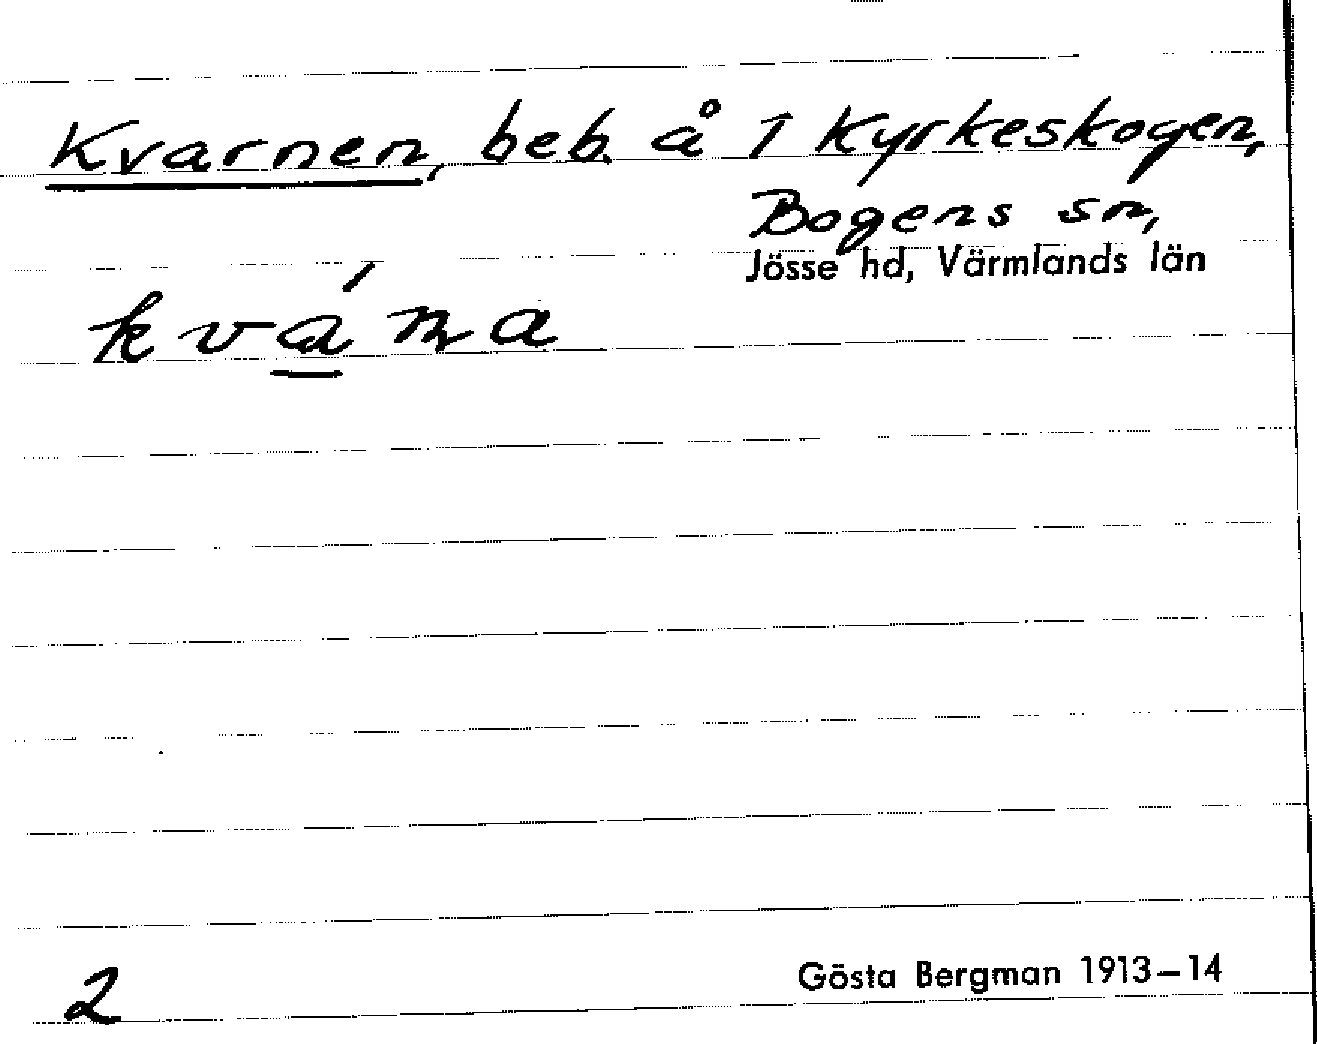 Kvarnen, beb. å 1 Kyrkeskogen,
Bogens sn,
Jösse hd, Värmlands län
kvá̱na
2
Gösta Bergman 1913–14